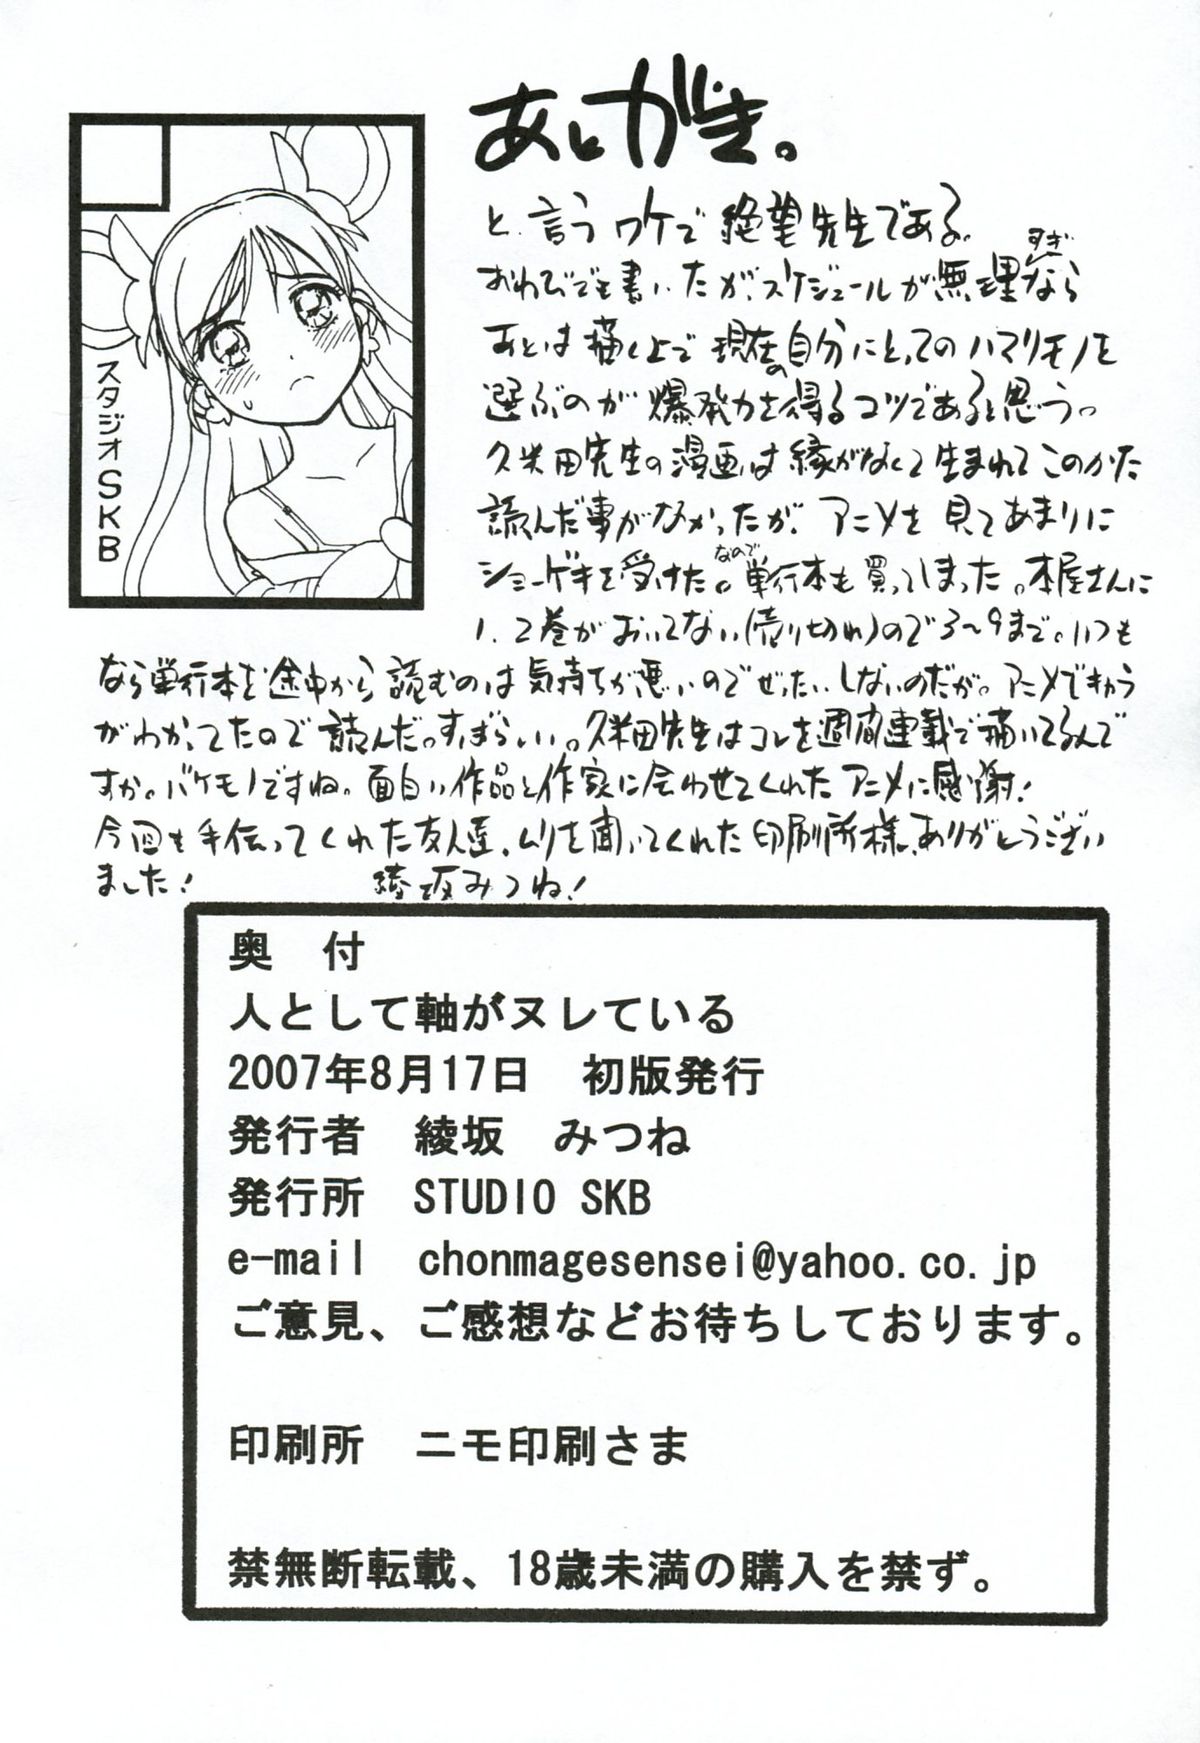 あとがき。
スタジオSKB
と、言うワケで絶望先生である。
おわびでも書いたが、スケジュールが無理すぎなら
あとは描く上で現在の自分にとってのハマりモノを
選ぶのが爆発力を得るコツであると思う。
久米田先生の漫画は縁がなくて生まれてこのかた
読んだ事がなかったが、アニメを見てあまりに
ショーゲキを受けた。なので単行本も買ってしまった。本屋さんに
1、2巻がおいてない(売り切れ)ので3〜9まで。いつも
なら単行本を途中から読むのは気持ちが悪いのでぜったいしないのだが。アニメできょう
がわかってたので読んだ。すばらしい。久米田先生はコレを週間連載で描いてるんで
すか。バケモノですね。面白い作品と作家に会わせてくれたアニメに感謝!
今回も手伝ってくれた友人達、ムリを聞いてくれた印刷所様、ありがとうござい
ました! 綾坂みつね!
奥 付
人として軸がヌレている
2007年8月17日 初版発行
発行者 綾坂 みつね
発行所 STUDIO SKB
e-mail chonmagesensei@yahoo.co.jp
ご意見、ご感想などお待ちしております。
印刷所 ニモ印刷さま
禁無断転載、18歳未満の購入を禁ず。